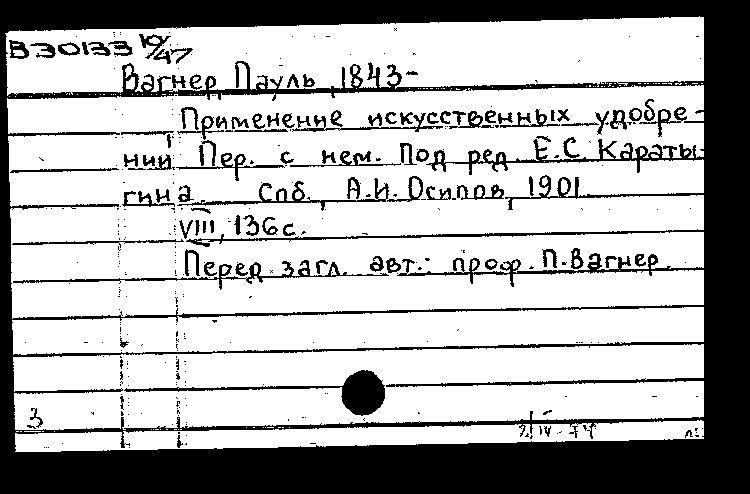 В30133 Ю/47
Вагнер, Пауль, 1843-
Применение искусственных удобре-
ний Пер. с нем. Под ред. Е.С. Караты-
гина. Спб., А.И. Осипов, 1901.
VIII, 136 с.
Перед загл. авт.: проф. П. Вагнер.
3